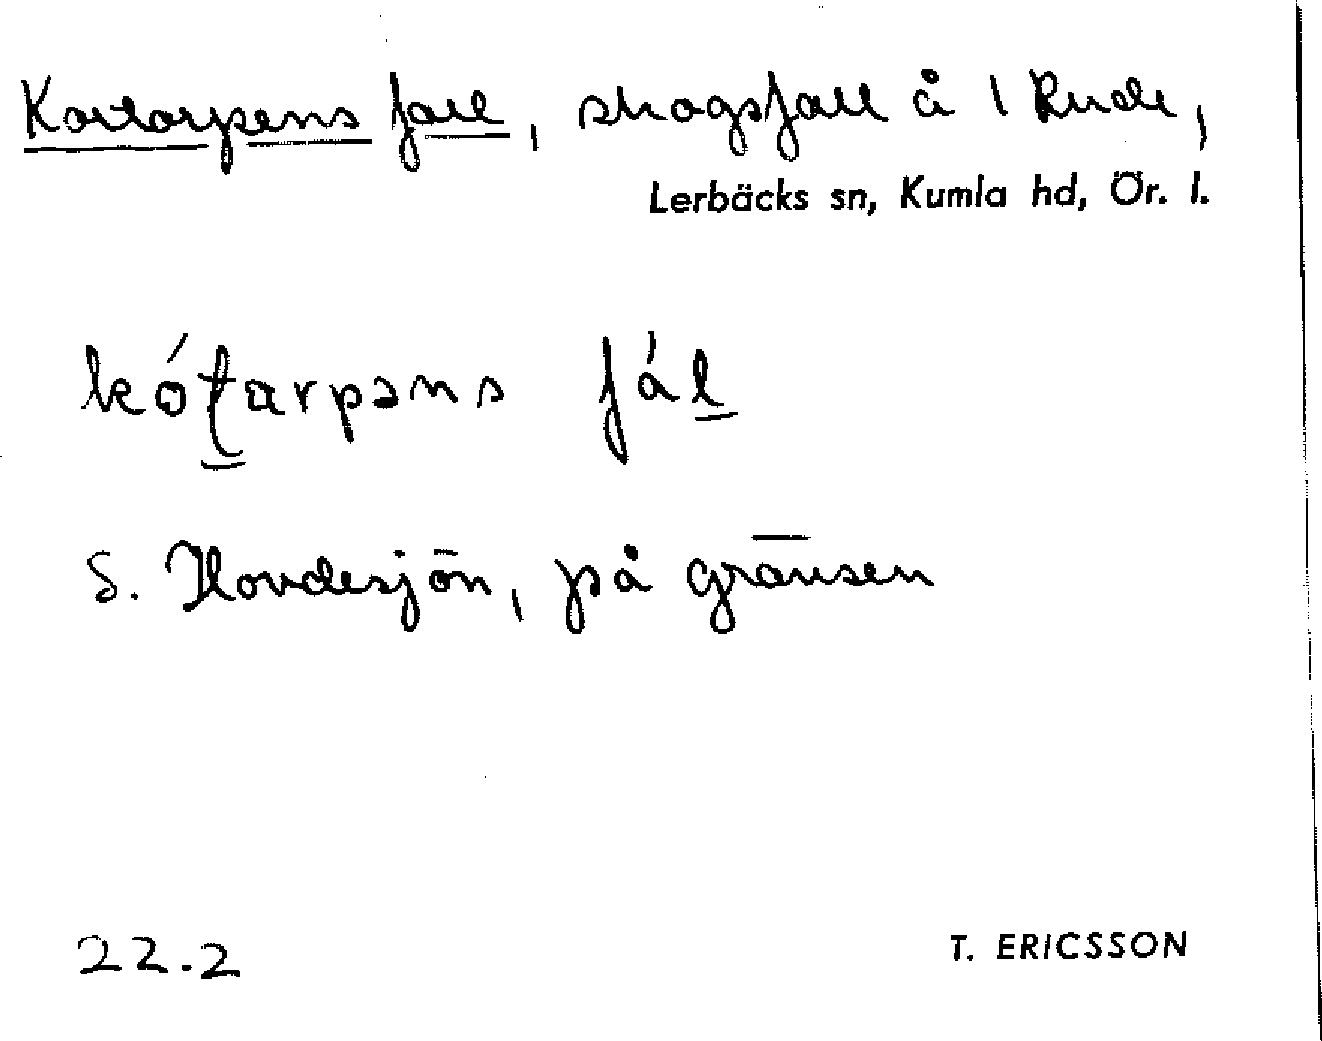 Kortorpens fall, skogsfall å 1 Rude,
Lerbäcks sn, Kumla hd, Ör. l.
kóʈarpəns fál
S. Hovdesjön, på gränsen
22.2
T. ERICSSON